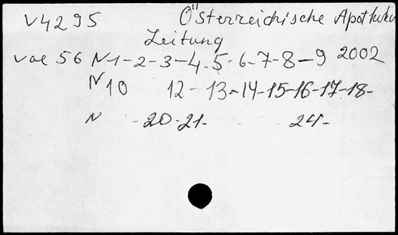 V4295 Österreichische Apotheker
Zeitung
vol 56 N 1-2-3-4-5-6-7-8-9 2002
N 10 12-13-14-15-16-17-18-
N -20-21- 24-